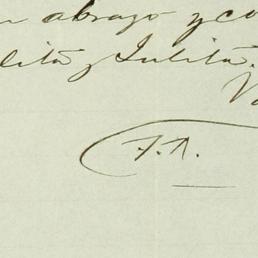 abrazo y co
lita y Julita.
J. A.